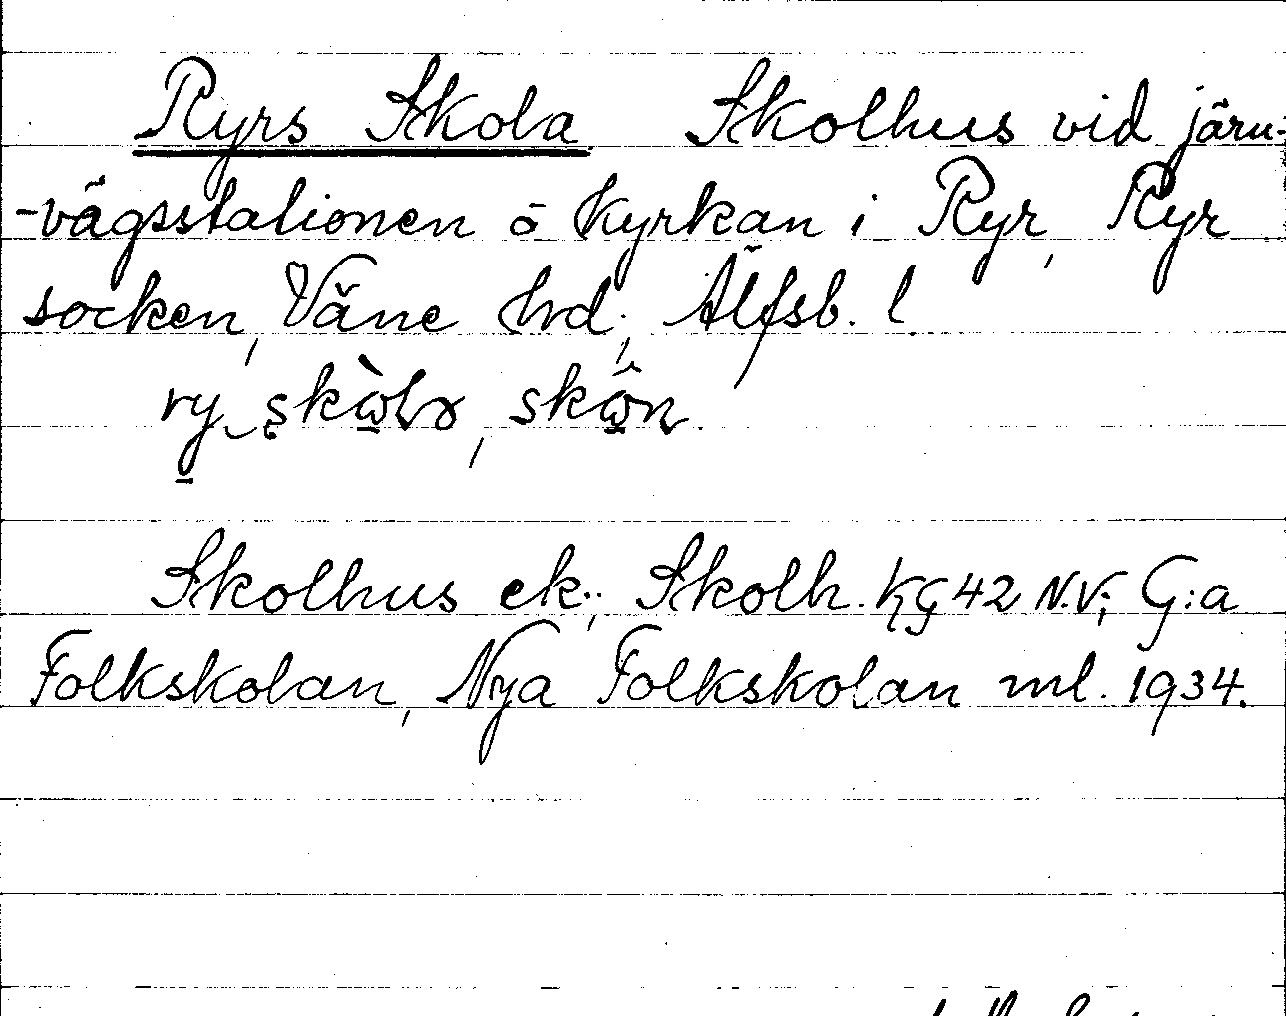 Ryrs Skola. Skolhus vid järn-
-vägsstationen o kyrkan i Ryr, Ryr
socken, Väne hrd; Älfsb. l.
ry skola, skon.
Skolhus ek.; Skolh. KG 42 N.V.; G:a
Folkskolan, Nya Folkskolan ml. 1934.